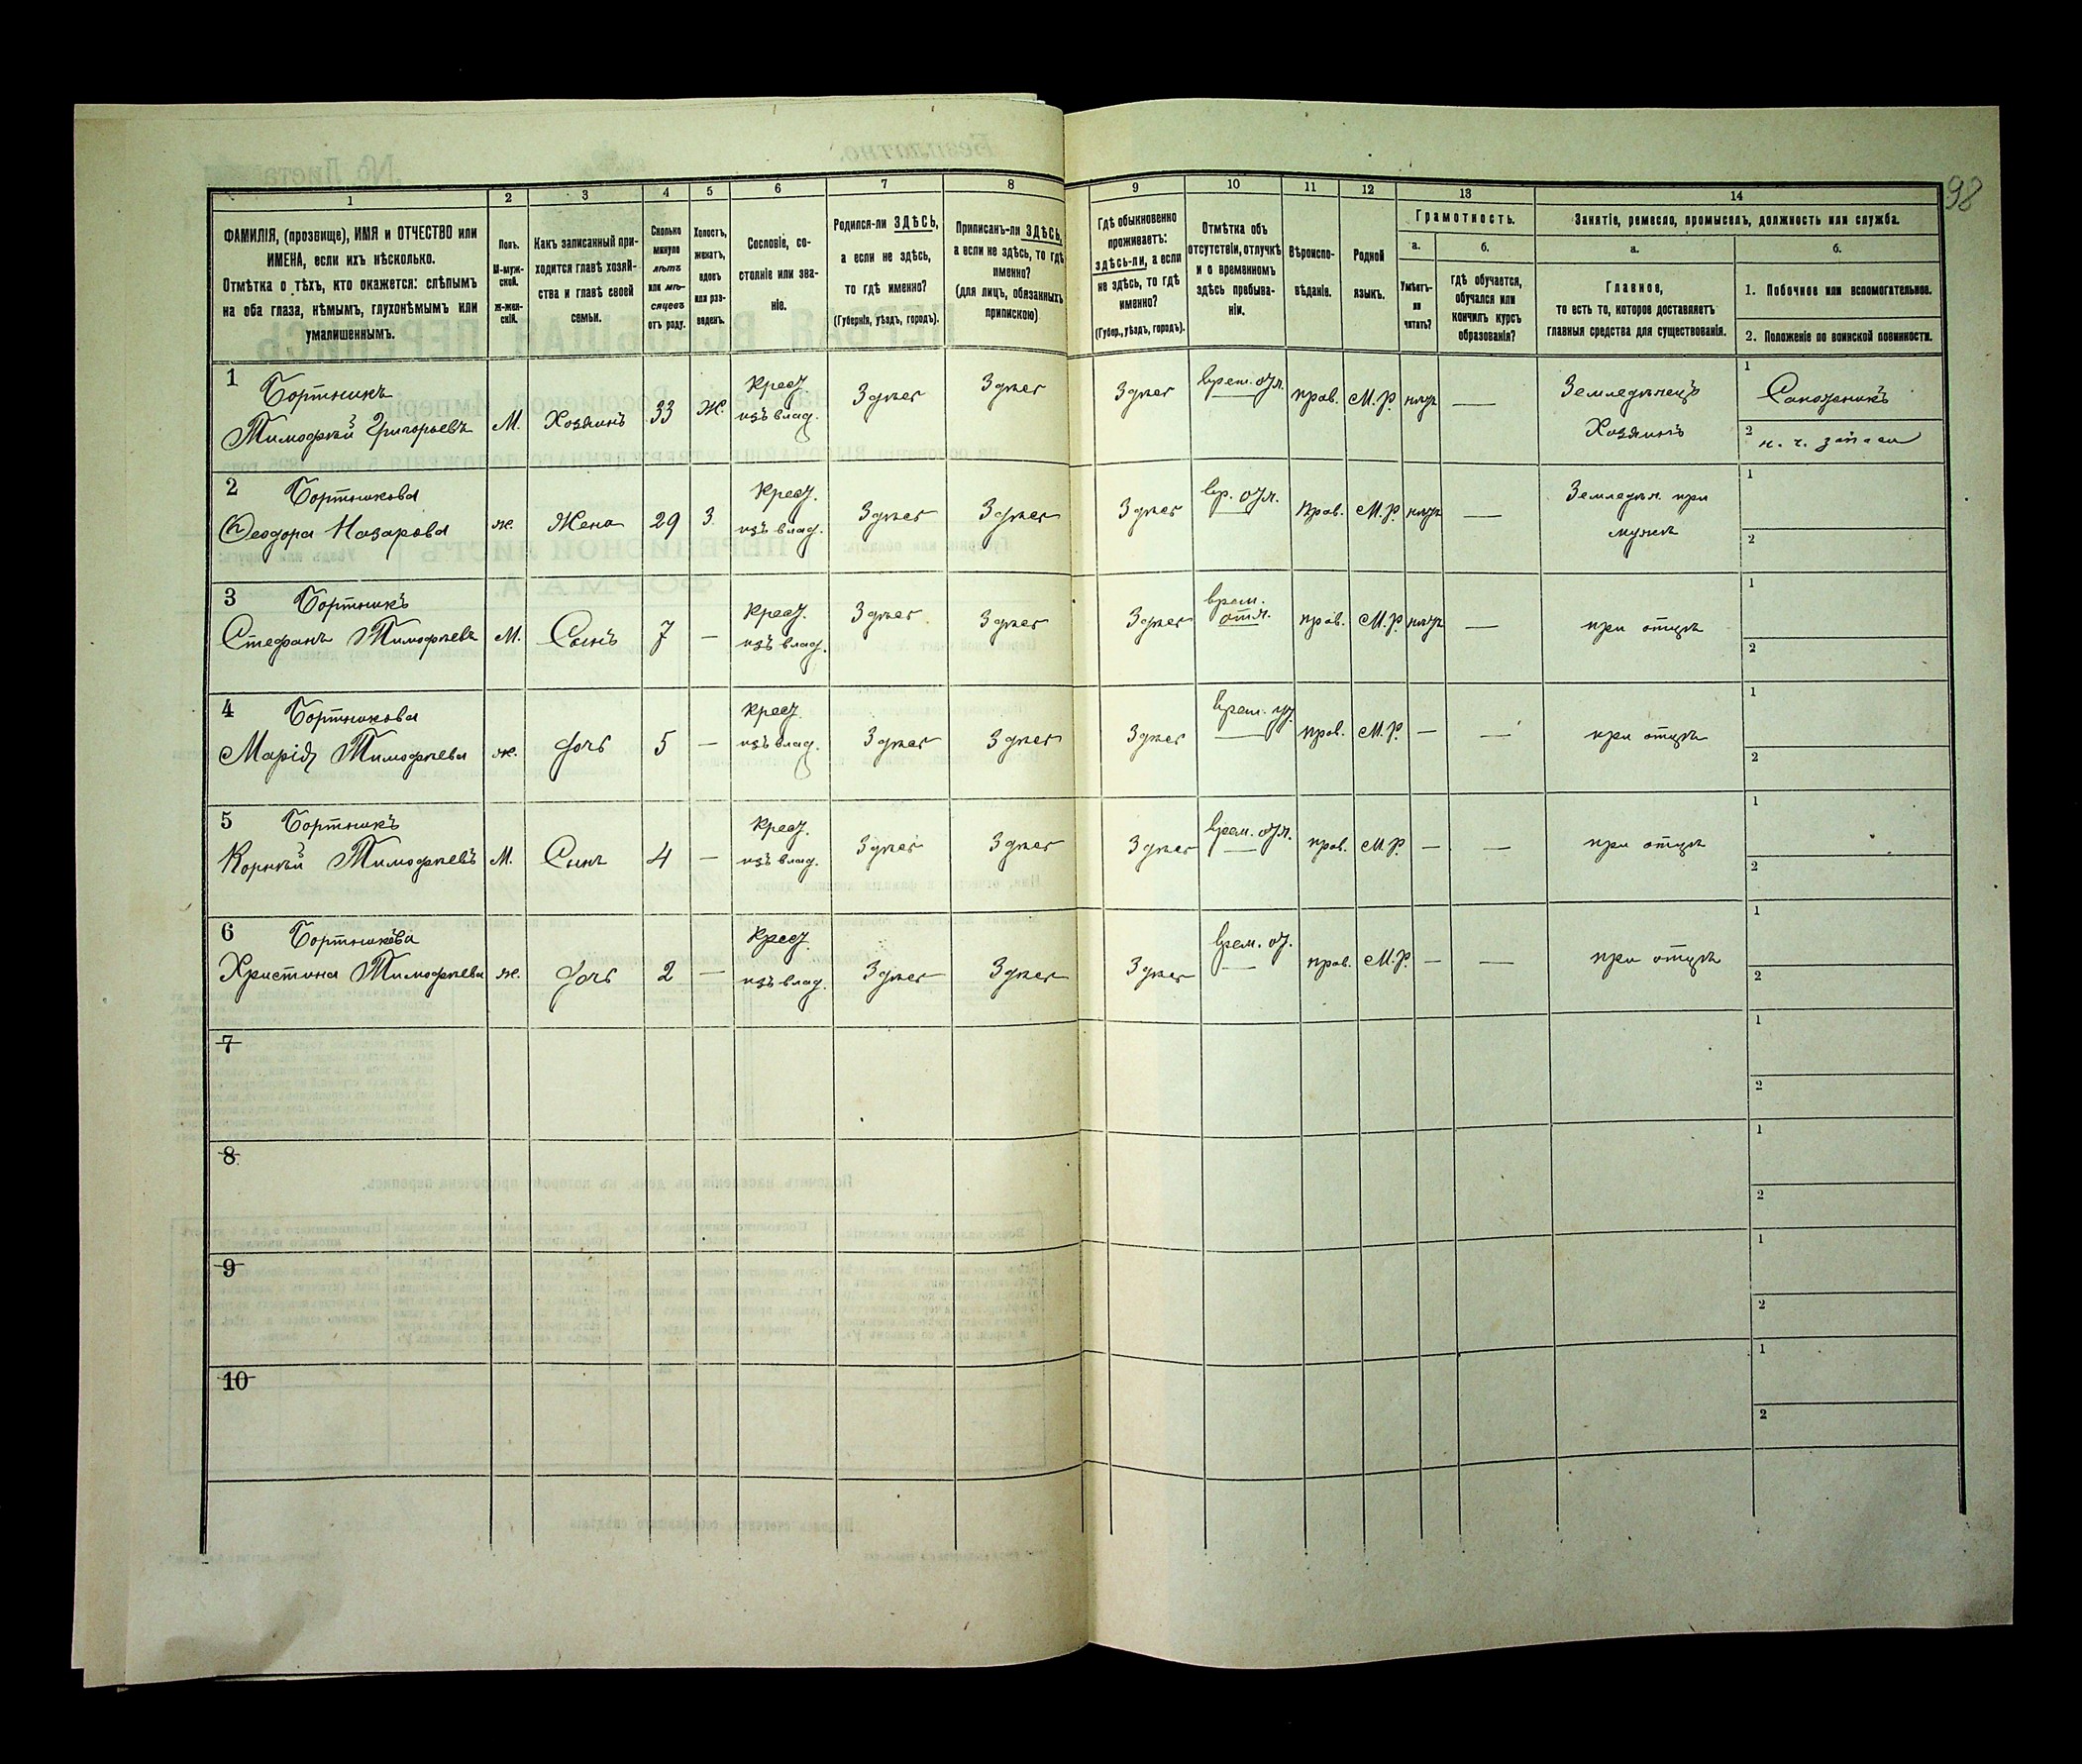 98
1 2 3 4 5 6 7 8 9 10 11 12 13 14
ФАМИЛІЯ, (прозвище), ИМЯ и ОТЧЕСТВО или
ИМЕНА, если ихъ нѣсколько.
Отмѣтка о тѣхъ, кто окажется: слѣпымъ
на оба глаза, нѣмымъ, глухонѣмымъ или
умалишеннымъ.
Полъ.
М-муж-
ской.
Ж-жен-
скій.
Какъ записанный при-
ходится главѣ хозяй-
ства и главѣ своей
семьи.
Сколько
минуло
лѣтъ
или мѣ-
сяцевъ
отъ роду.
Холостъ,
женатъ,
вдовъ
или раз-
веденъ.
Сословіе, со-
стояніе или зва-
ніе.
Родился-ли ЗДѢСЬ,
а если не здѣсь,
то гдѣ именно?
(Губернія, уѣздъ, городъ).
Приписанъ-ли ЗДѢСЬ,
а если не здѣсь, то гдѣ
именно?
(для лицъ, обязанныхъ
припискою)
Гдѣ обыкновенно
проживаетъ:
здѣсь-ли, а если
не здѣсь, то гдѣ
именно?
(Губер., уѣздъ, городъ).
Отмѣтка объ
отсутствіи, отлучкѣ
и о временномъ
здѣсь пребыва-
ніи.
Вѣроиспо-
вѣданіе.
Родной
языкъ.
Грамотность.
а.
Умѣетъ-
ли
читать?
б.
гдѣ обучается,
обучался или
кончилъ курсъ
образованія?
Занятіе, ремесло, промыселъ, должность или служба.
а.
Главное,
то есть то, которое доставляетъ
главныя средства для существованія.
б.
1. Побочное или вспомогательное.
2. Положеніе по воинской повинности.
1 Бортникъ
Тимофѣй Григорьевъ М. Хозяинъ 33 Ж.
Крест.
изъ влад.
Здѣсь Здѣсь Здѣсь врем. отл. прав. М.Р. нѣтъ —
Земледѣлецъ
Хозяинъ
1 Сапожникъ
2
2 Бортникова
Ѳеодора Назарова ж. Жена 29 З.
Крест.
изъ влад.
Здѣсь Здѣсь Здѣсь вр. отл. Прав. М.Р. нѣтъ —
Земледѣл. при
мужѣ
1
2
3 Бортникъ
Стефанъ Тимофѣевъ М. Сынъ 7 —
Крест.
изъ влад.
Здѣсь Здѣсь Здѣсь
врем.
отл.
прав. М.Р. нѣтъ — при отцѣ
1
2
4 Бортникова
Марія Тимофѣева ж. Дочь 5 —
Крест.
изъ влад.
Здѣсь Здѣсь Здѣсь врем. прав. М.Р. — — при отцѣ
1
2
5 Бортникъ
Корнѣй Тимофѣевъ М. Сынъ 4 —
Крест.
изъ влад.
Здѣсь Здѣсь Здѣсь врем. отл. прав. М.Р. — — при отцѣ
1
2
6 Бортникова
Христина Тимофѣева ж. Дочь 2 —
Крест.
изъ влад.
Здѣсь Здѣсь Здѣсь врем. от. прав. М.Р. — — при отцѣ
1
2
7
1
2
8
1
2
9
1
2
10
1
2